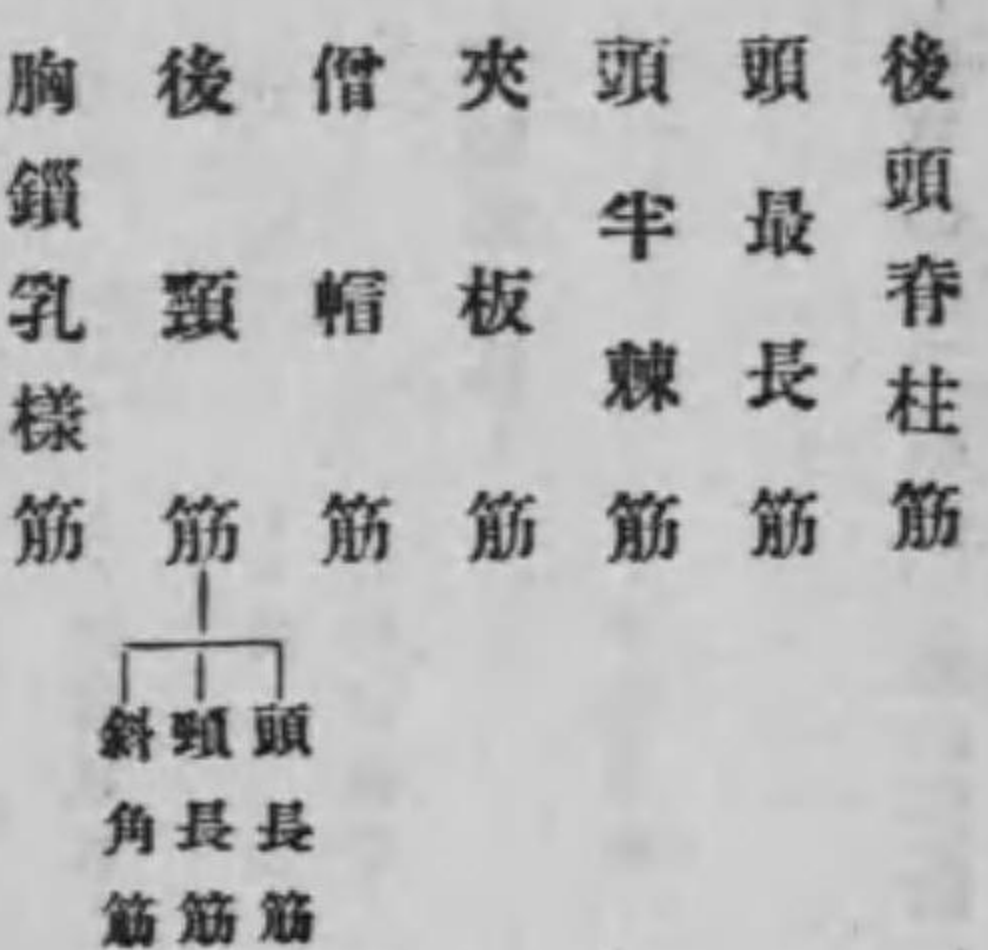 後頭脊柱筋
頭最長筋
頭半棘筋
夾板筋
僧帽筋
後頸筋
頭長筋
頸長筋
斜角筋
胸鎖乳様筋